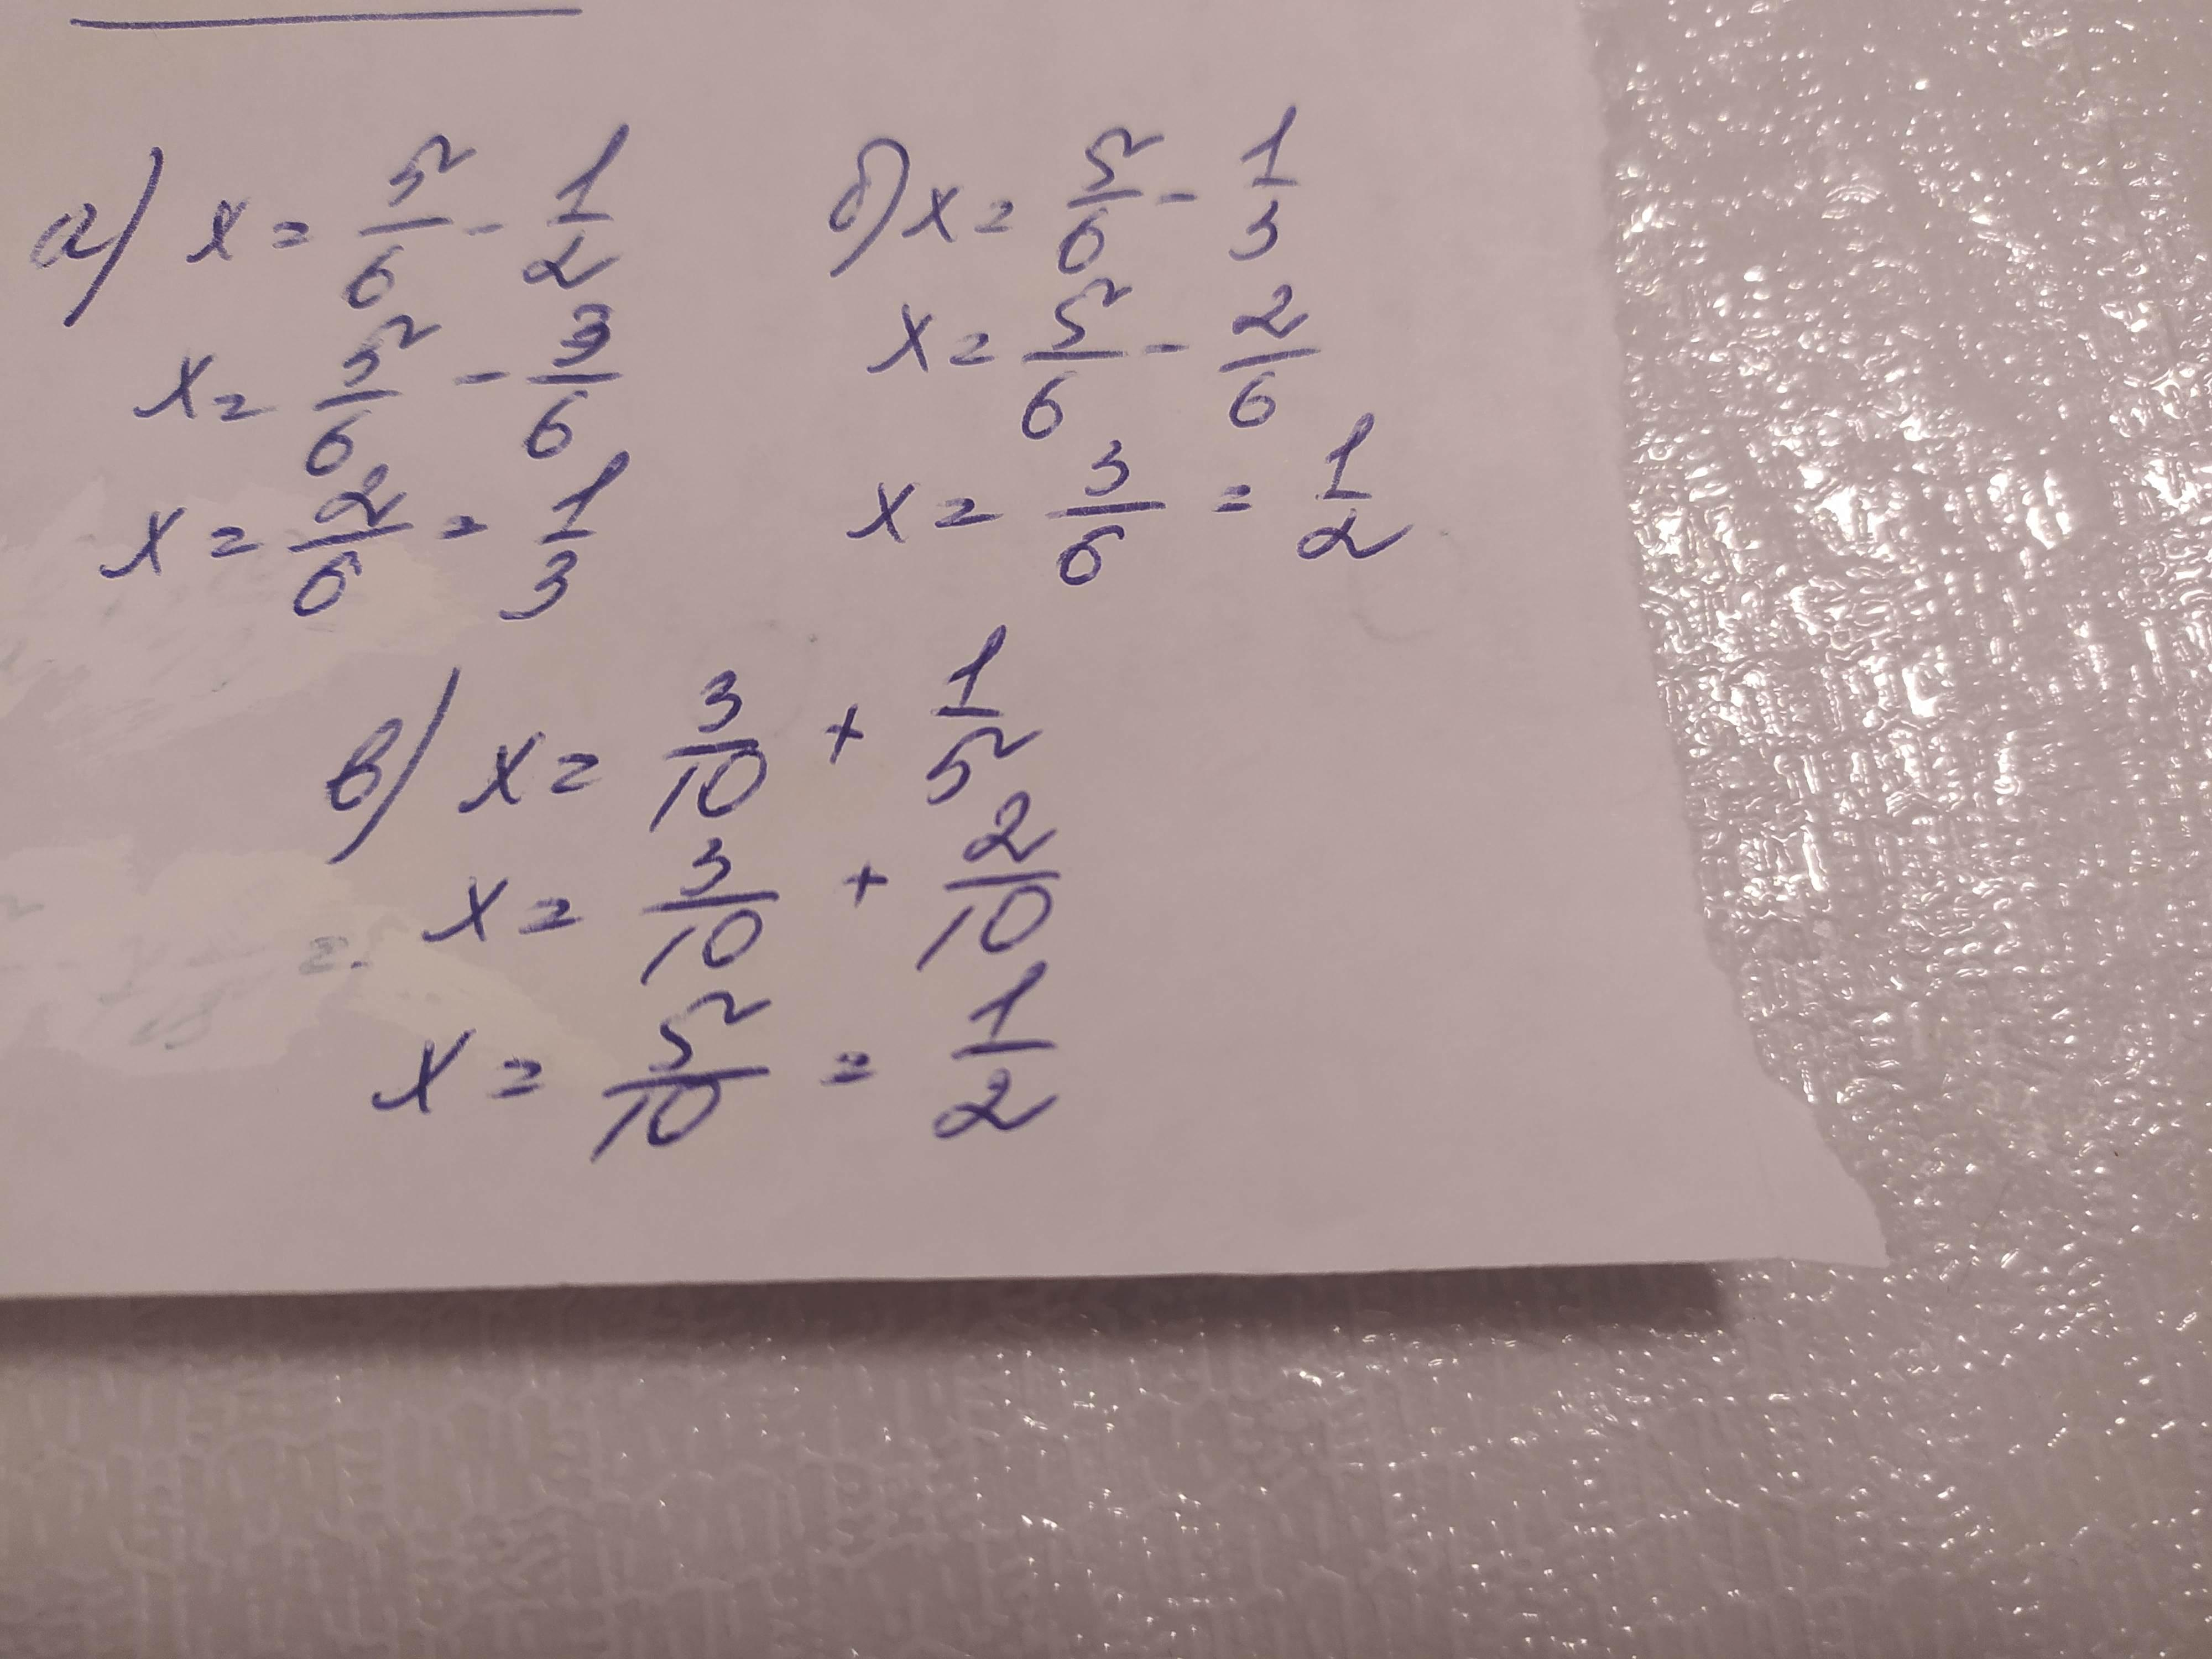 а) x = 5/6 - 1/2
x = 5/6 - 3/6
x = 2/6 = 1/3
б) x = 5/6 - 1/3
x = 5/6 - 2/6
x = 3/6 = 1/2
в) x = 3/10 + 1/5
x = 3/10 + 2/10
x = 5/10 = 1/2